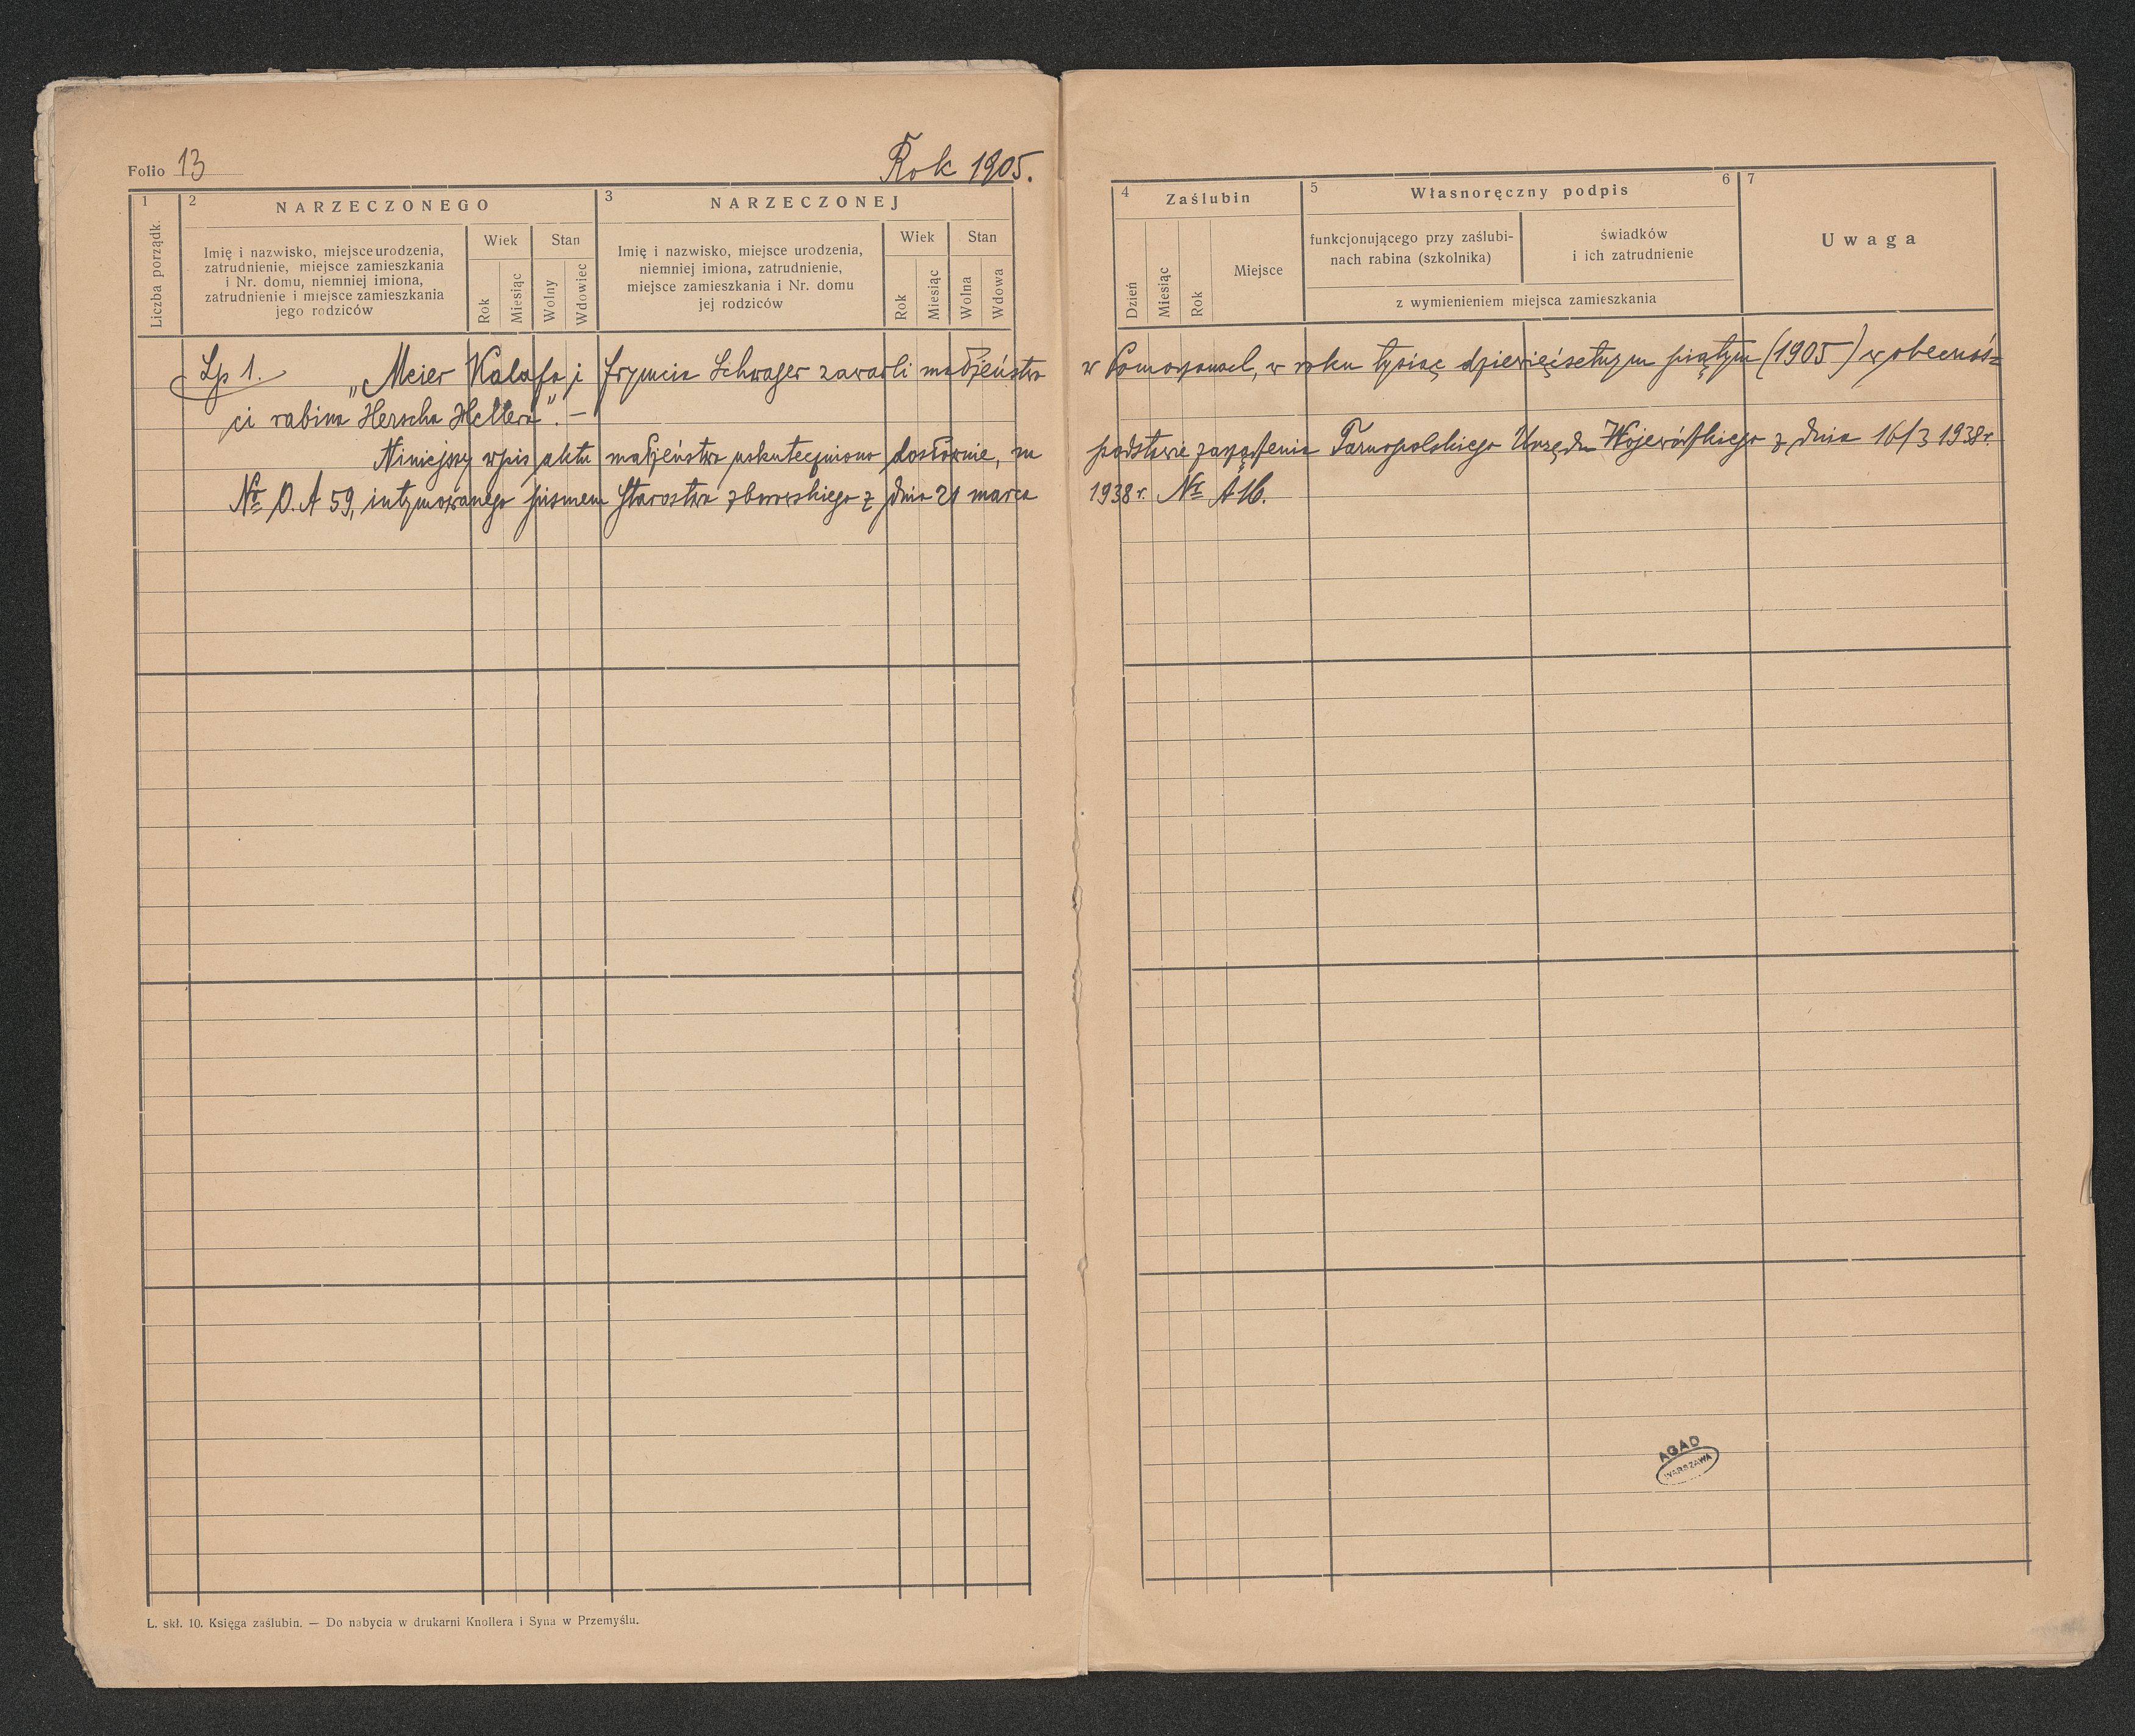 Folio 13
Rok 1905.
1
2
NARZECZONEGO
3
NARZECZONEJ
Liczba porządk.
Imię i nazwisko, miejsce urodzenia,
zatrudnienie, miejsce zamieszkania
i Nr. domu, niemniej imiona,
zatrudnienie i miejsce zamieszkania
jego rodziców
Wiek
Stan
Rok
Miesiąc
Wolny
Wdowiec
Imię i nazwisko, miejsce urodzenia,
niemniej imiona, zatrudnienie,
miejsce zamieszkania i Nr. domu
jej rodziców
Wiek
Stan
Rok
Miesiąc
Wolna
Wdowa
4
Zaślubin
5
Własnoręczny podpis
6
7
Dzień
Miesiąc
Rok
Miejsce
funkcjonującego przy zaślubi-
nach rabina (szkolnika)
świadków
i ich zatrudnienie
z wymienieniem miejsca zamieszkania
Uwaga
Lp 1. „Meier Kalafa i Frymcia Schwager zawarli małżeństwo w Pomorzanach, w roku tysiąc dziewięćsetnym piątym (1905) w obecnoś=
ci rabina Herscha Hellera". —
Niniejszy wpis aktu małżeństwa uskuteczniono dosłownie, na podstawie zarządzenia Tarnopolskiego Urzędu Wojewódzkiego z dnia 16/3 1938 r.
Nr O. A 59, intymowanego pismem Starostwa zborowskiego z dnia 21 marca 1938 r. Nr A 16.
L. skł. 10. Księga zaślubin. — Do nabycia w drukarni Knollera i Syna w Przemyślu.
AGAD
WARSZAWA